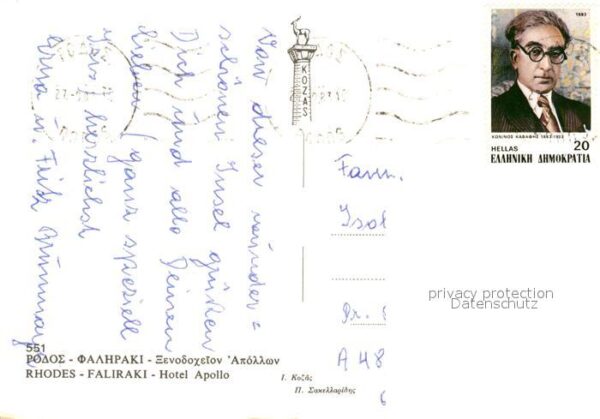 Von dieser wunder=
schönen Insel grüßen
Dich und alle Deinen
Lieben / ganz speziell
herzlichst
u. Fritz
Fam.
Isol
Pr.
A 48
6
1983
ΚΩΝ/ΝΟΣ ΚΑΒΑΦΗΣ 1863-1933
HELLAS 20
ΕΛΛΗΝΙΚΗ ΔΗΜΟΚΡΑΤΙΑ
KOZAS
privacy protection
Datenschutz
551
ΡΟΔΟΣ - ΦΑΛΗΡΑΚΙ - Ξενοδοχεῖον Ἀπόλλων
RHODES - FALIRAKI - Hotel Apollo
Ι. Κοζᾶς
Π. Σακελλαρίδης